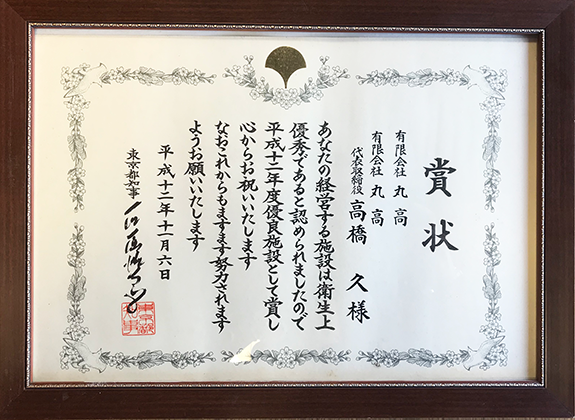 賞状
有限会社 丸高
有限会社 丸高
代表取締役 高橋 久 様
あなたの経営する施設は衛生上
優秀であると認められましたので
平成十二年度優良施設として賞し
心からお祝いいたします
なおこれからもますます努力されます
ようお願いいたします
平成十二年十一月六日
東京都知事 石原慎太郎
東京都知事